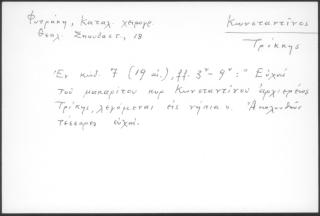 Φυτράκη, Καταλ. χειρογρ.
Θεολ. Σπουδαστ., 18.
Κωνσταντῖνος
Τρίκκης
Ἐν κώδ. 7 (19 αἰ.), ff. 3ᵛ - 9ᵛ : "Εὐχαὶ
τοῦ μακαρίτου κυρ Κωνσταντίνου ἀρχιερέως
Τρίκης, λεγόμεναι εἰς νήπια". Ἀκολουθοῦν
τέσσαρες εὐχαί.